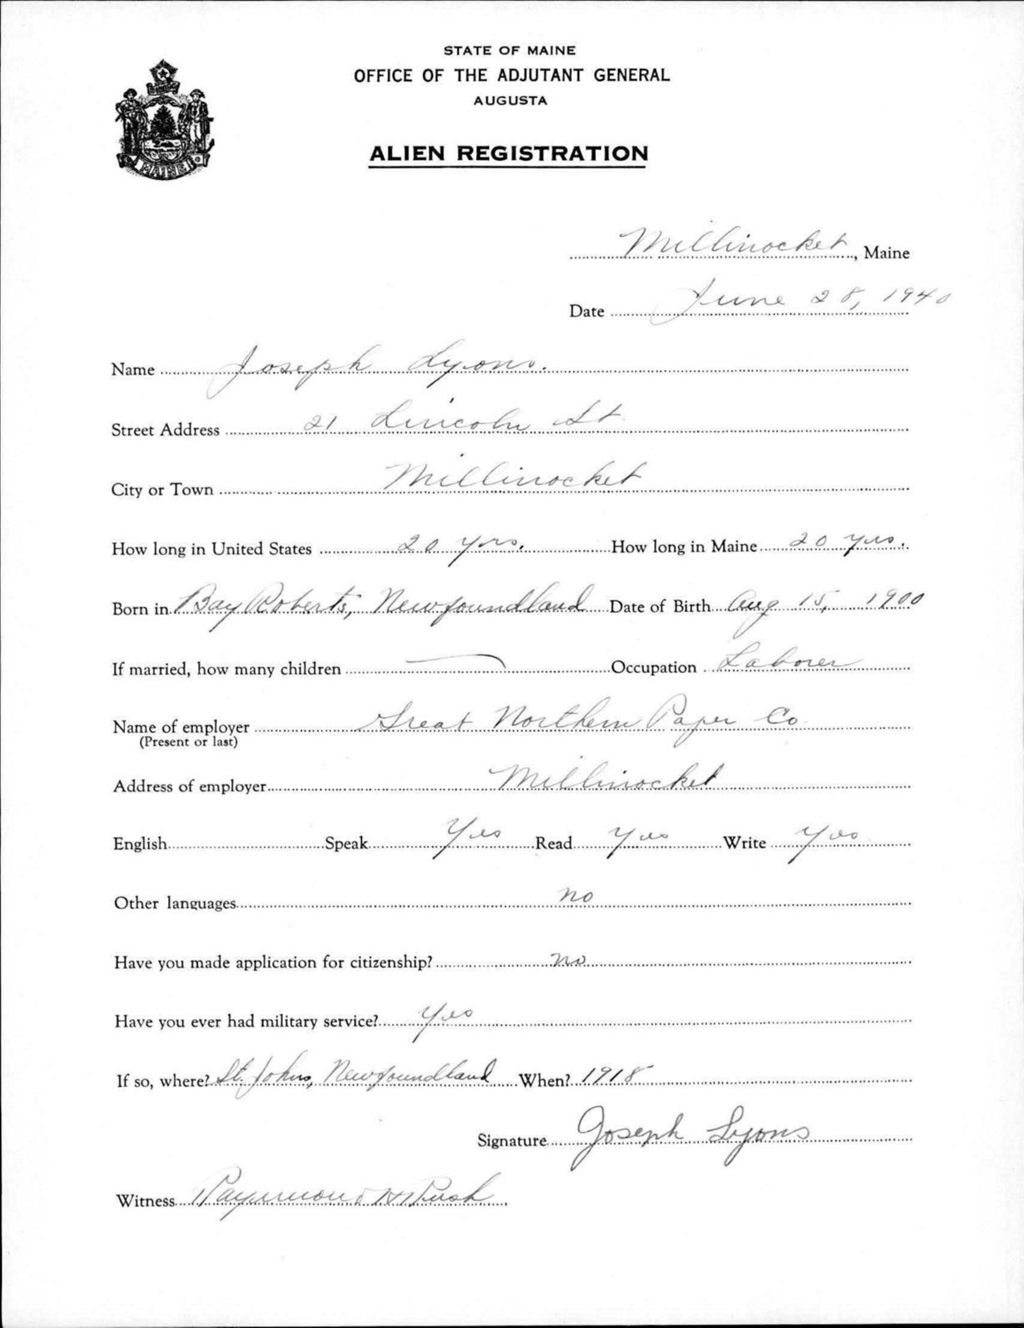 STATE OF MAINE
OFFICE OF THE ADJUTANT GENERAL
AUGUSTA
ALIEN REGISTRATION
MAINE
Millinocket, Maine
Date June 28, 1940
Name Joseph Lyons.
Street Address 21 Lincoln St.
City or Town Millinocket
How long in United States 20 yrs. How long in Maine 20 yrs.
Born in Bay Roberts, Newfoundland Date of Birth Aug 15, 1900
If married, how many children — Occupation Laborer
Name of employer Great Northern Paper Co.
(Present or last)
Address of employer Millinocket
English Speak Yes Read Yes Write Yes
Other languages no
Have you made application for citizenship? no
Have you ever had military service? Yes
If so, where? St. Johns, Newfoundland When? 1918
Signature Joseph Lyons
Witness Raymond H Rush